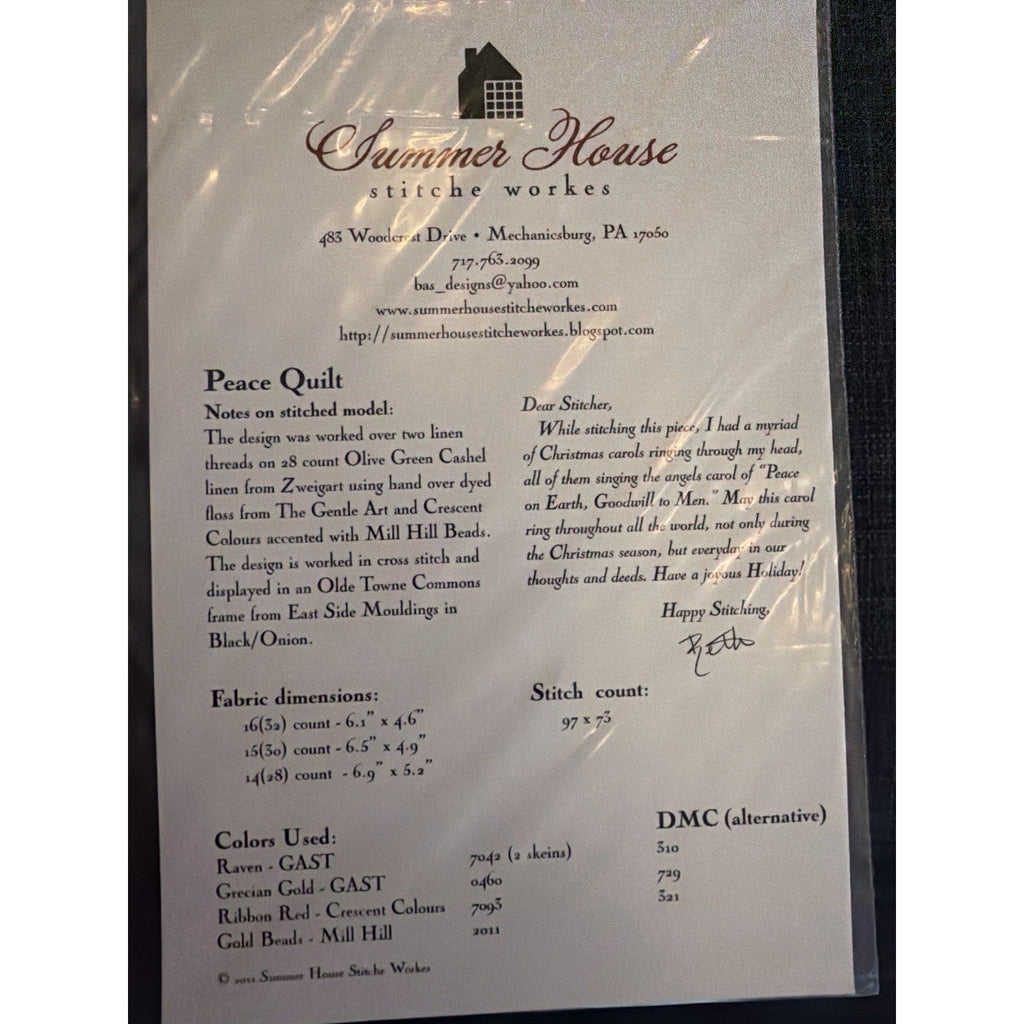 Summer House
stitche workes
483 Woodcrest Drive • Mechanicsburg, PA 17050
717.763.2099
bas_designs@yahoo.com
www.summerhousestitcheworkes.com
http://summerhousestitcheworkes.blogspot.com
Peace Quilt
Notes on stitched model:
The design was worked over two linen
threads on 28 count Olive Green Cashel
linen from Zweigart using hand over dyed
floss from The Gentle Art and Crescent
Colours accented with Mill Hill Beads.
The design is worked in cross stitch and
displayed in an Olde Towne Commons
frame from East Side Mouldings in
Black/Onion.
Dear Stitcher,
While stitching this piece, I had a myriad
of Christmas carols ringing through my head,
all of them singing the angels carol of "Peace
on Earth, Goodwill to Men." May this carol
ring throughout all the world, not only during
the Christmas season, but everyday in our
thoughts and deeds. Have a joyous Holiday!
Happy Stitching,
Beth
Fabric dimensions:
16(32) count - 6.1" x 4.6"
15(30) count - 6.5" x 4.9"
14(28) count - 6.9" x 5.2"
Stitch count:
97 x 73
Colors Used: DMC (alternative)
Raven - GAST 7042 (2 skeins) 310
Grecian Gold - GAST 0460 729
Ribbon Red - Crescent Colours 7093 321
Gold Beads - Mill Hill 2011
© Summer House Stitche Workes